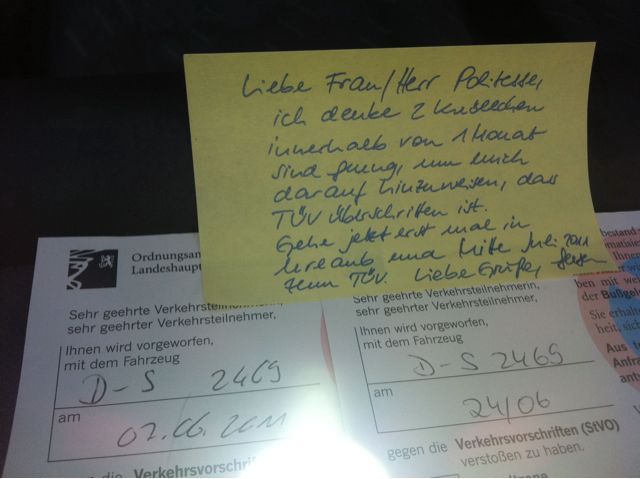 Liebe Frau/Herr Politesse,
ich denke 2 Knöllchen
innerhalb von 1 Monat
sind genug, um mich
darauf hinzuweisen, das
TÜV überschritten ist.
Gehe jetzt erst mal in
Urlaub und Mitte Juli 2011
zum TÜV. Liebe Grüße,
Ordnungsam
Landeshaupt
Sehr geehrte Verkehrsteilnehmerin,
sehr geehrter Verkehrsteilnehmer,
Ihnen wird vorgeworfen,
mit dem Fahrzeug
D-S 2469
am
02.06.2011
die Verkehrsvorschri
Sehr geehrte Verkehrsteilnehmerin,
sehr geehrter Verkehrsteilnehmer,
Ihnen wird vorgeworfen,
mit dem Fahrzeug
D-S 2469
am
24/06
gegen die Verkehrsvorschriften (StVO)
verstoßen zu haben.
bestand
Ihnen
ben mit we
der Bußgel
Sie erhalt
heit, sich
Aus t
Anfra
antw